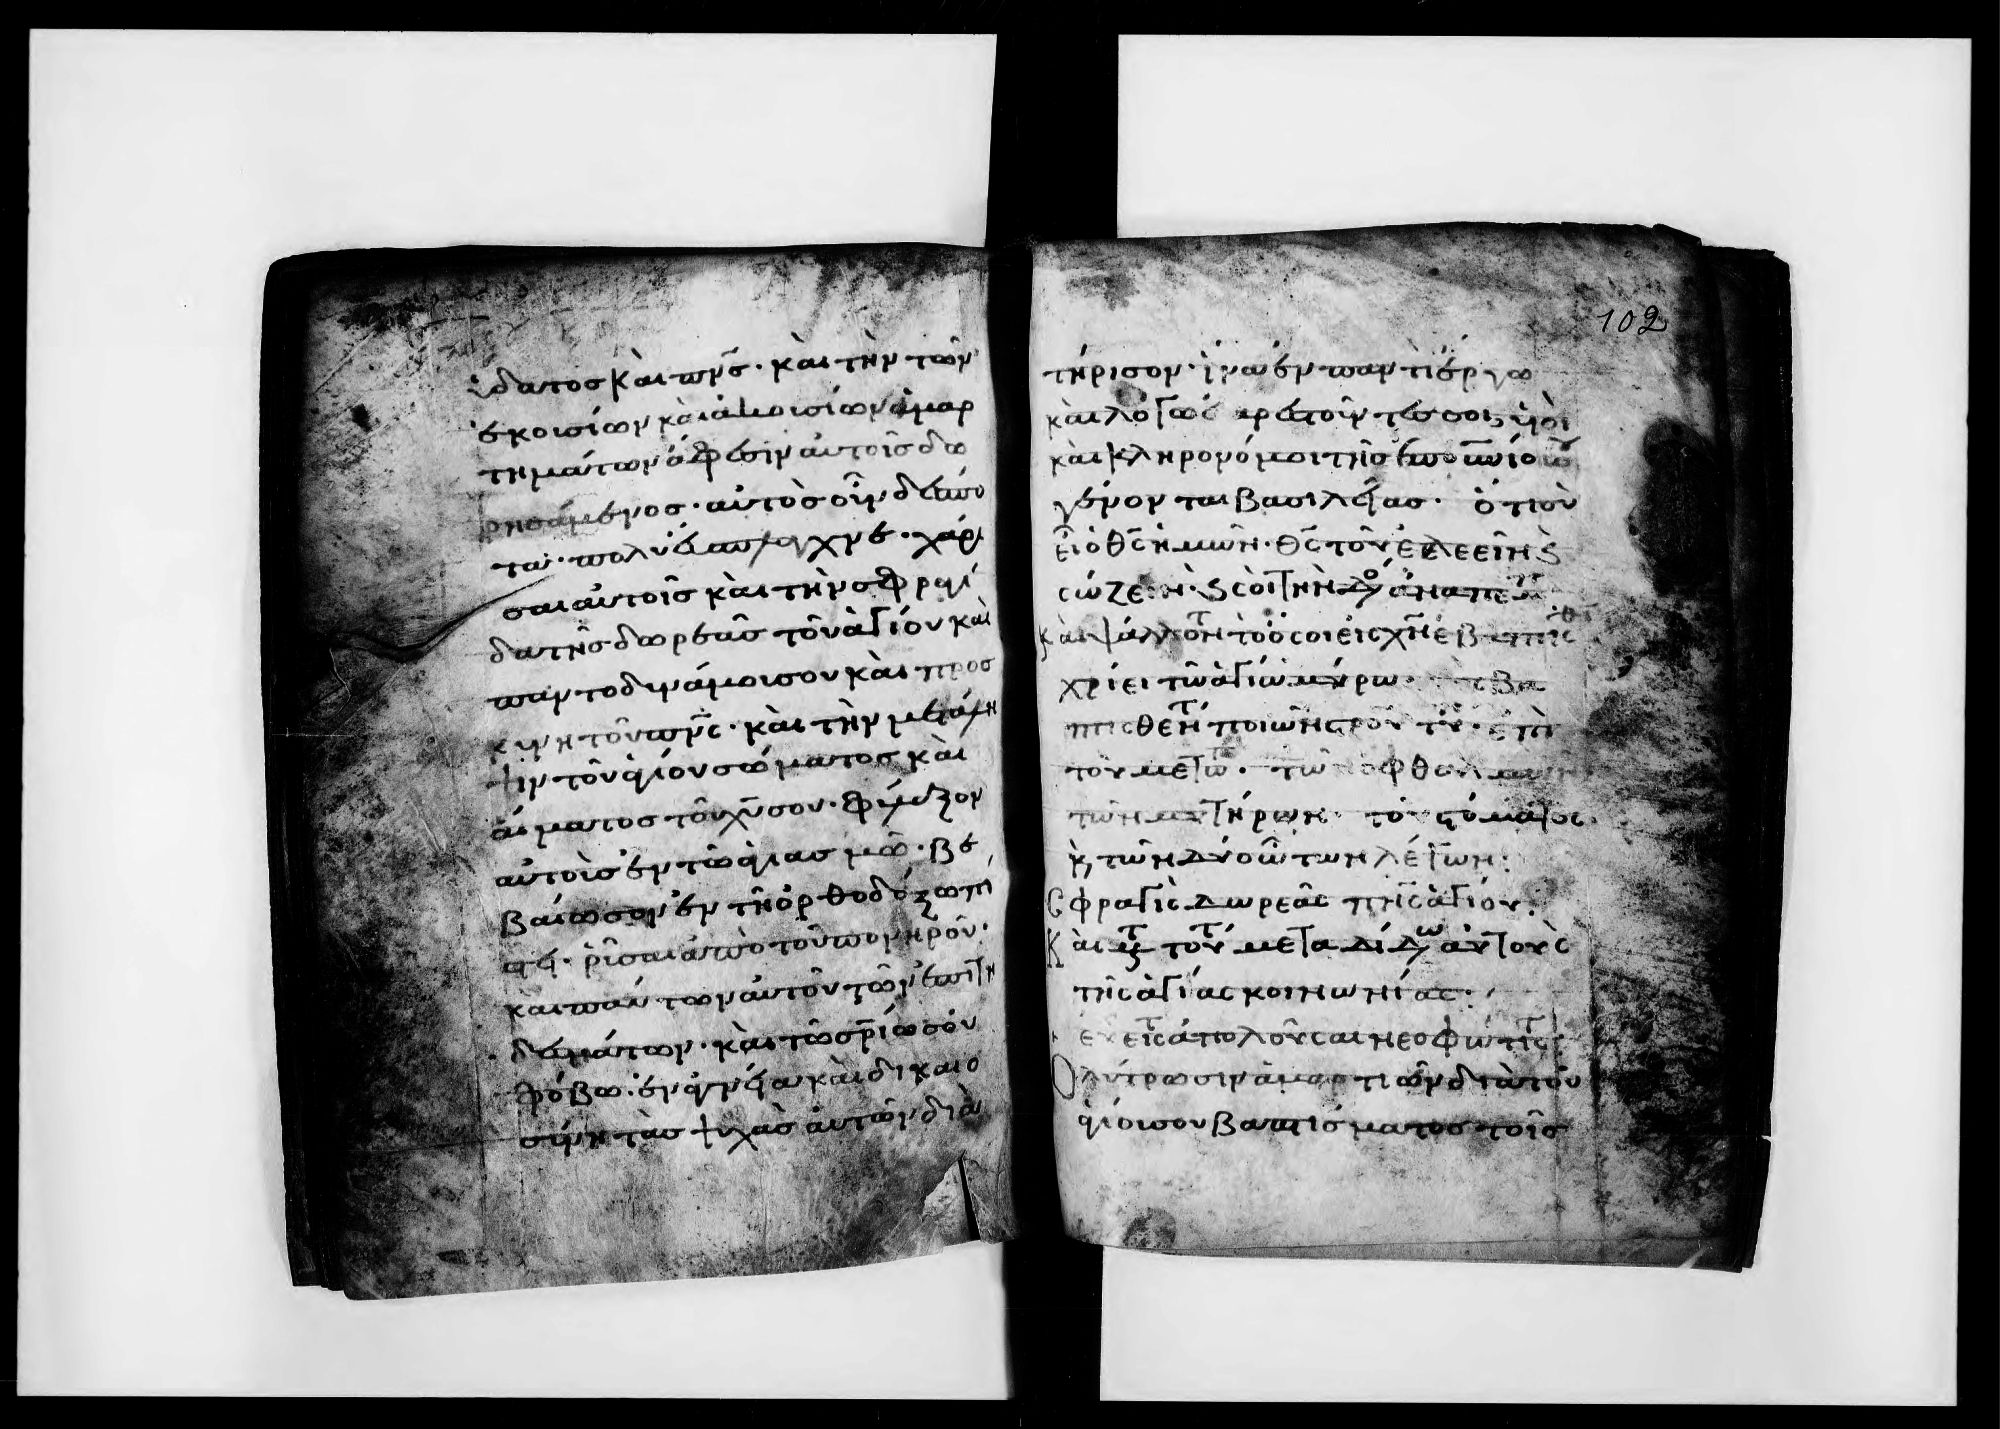 ὕδατος καὶ πν̅ς̅· καὶ τὴν τῶν
ἑκουσίων καὶ ἀκουσίων ἁμαρ
τημάτων ἄφεσιν αὐτοῖς δω
ρησάμενος· αὐτὸς οὖν δέσπο
τα· πολυέσπλαγχνε· χάρι
σαι αὐτοῖς καὶ τὴν σφραγί
δα τῆς δωρεᾶς τοῦ ἁγίου καὶ
παντοδυνάμου σου καὶ προσ
κυνητοῦ πν̅ς̅· καὶ τὴν μετάλη
ψιν τοῦ ἁγίου σώματος καὶ
αἵματος τοῦ χ̅υ̅ σου· φύλαξον
αὐτοὺς ἐν τῶ ἁγιασμῶ· βε
βαίωσον ἐν τῆ ὀρθοδόξω πί
στει· ῥῦσαι ἀπὸ τοῦ πονηροῦ·
καὶ πάντων αὐτοῦ τῶν ἐπιτη
δευμάτων· καὶ τῶ σ̅ρ̅ίω σου
φόβω· ἐν ἁγνεία καὶ δικαιο
σύνη τὰς ψυχὰς αὐτῶν δια
102
τήρισον· ἵνα ἐν παντὶ ἔργω
καὶ λόγω εὐαρεστοῦντές σοι υἱοὶ
καὶ κληρονόμοι τῆς ἐπουνίου
γένονται βασιλείας· ὅτι σὺ
εἶ ὁ θ̅ς̅ ἡμῶν· θ̅ς̅ τοῦ ἐλεεῖν ϗ
σώζειν· ϗ σοὶ τὴν δό ἀναπέ
Καὶ ψάλλοντ τὸ ὅσοι εἰς χ̅ν̅ ἐβαπτίσθ
χρίει τῶ ἁγίω μύρω τοὺς βα
πτισθέντ ποιῶν στρον τύ· ἐπὶ
τοῦ μετώπ· τῶν ὀφθαλμῶν·
τῶν μυκτήρων· τοῦ στόματος·
ϗ τῶν δύο ὤτων λέγων:
Σφραγὶς δωρεᾶς πν̅ς̅ ἁγίου:
Καὶ μετ τοῦτ μεταδίδω αὐτοὺς
τῆς ἁγίας κοινωνίας:
εὐχ εἰς τ ἀπολοῦσαι νεοφώτις:
Ὁ λύτρωσιν ἁμαρτιῶν διὰ τοῦ
ἁγίου σου βαπτίσματος τοῖς